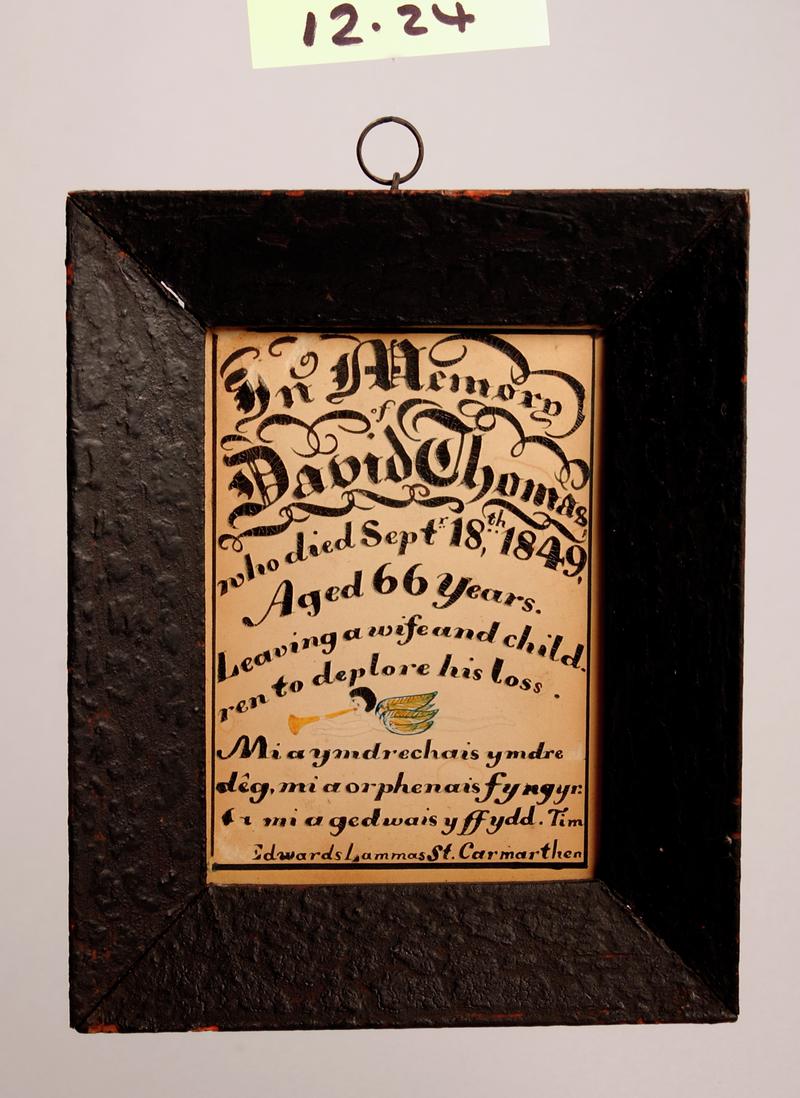 12.24
In Memory
of
David Thomas,
who died Septr. 18th, 1849,
Aged 66 Years.
Leaving a wife and child.
ren to deplore his loss .
Mi a ymdrechais ymdre
dêg, mi a orphenais fy ngyr:
mi a gedwais y ffydd. Tim
Edwards Lammas St. Carmarthen